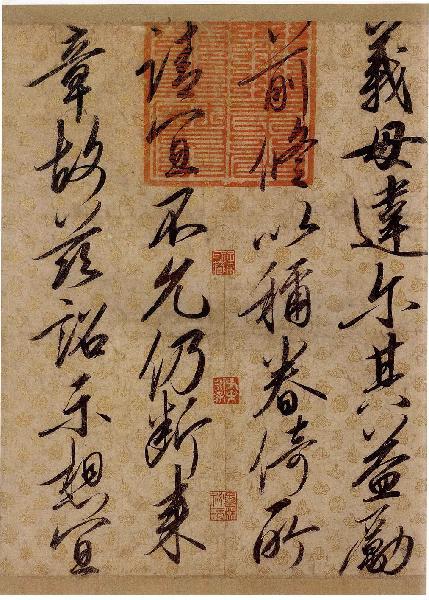 義毋違尔其益勵
前脩以稱眷倚所
請宜不允仍斷来
章故茲詔示想宜